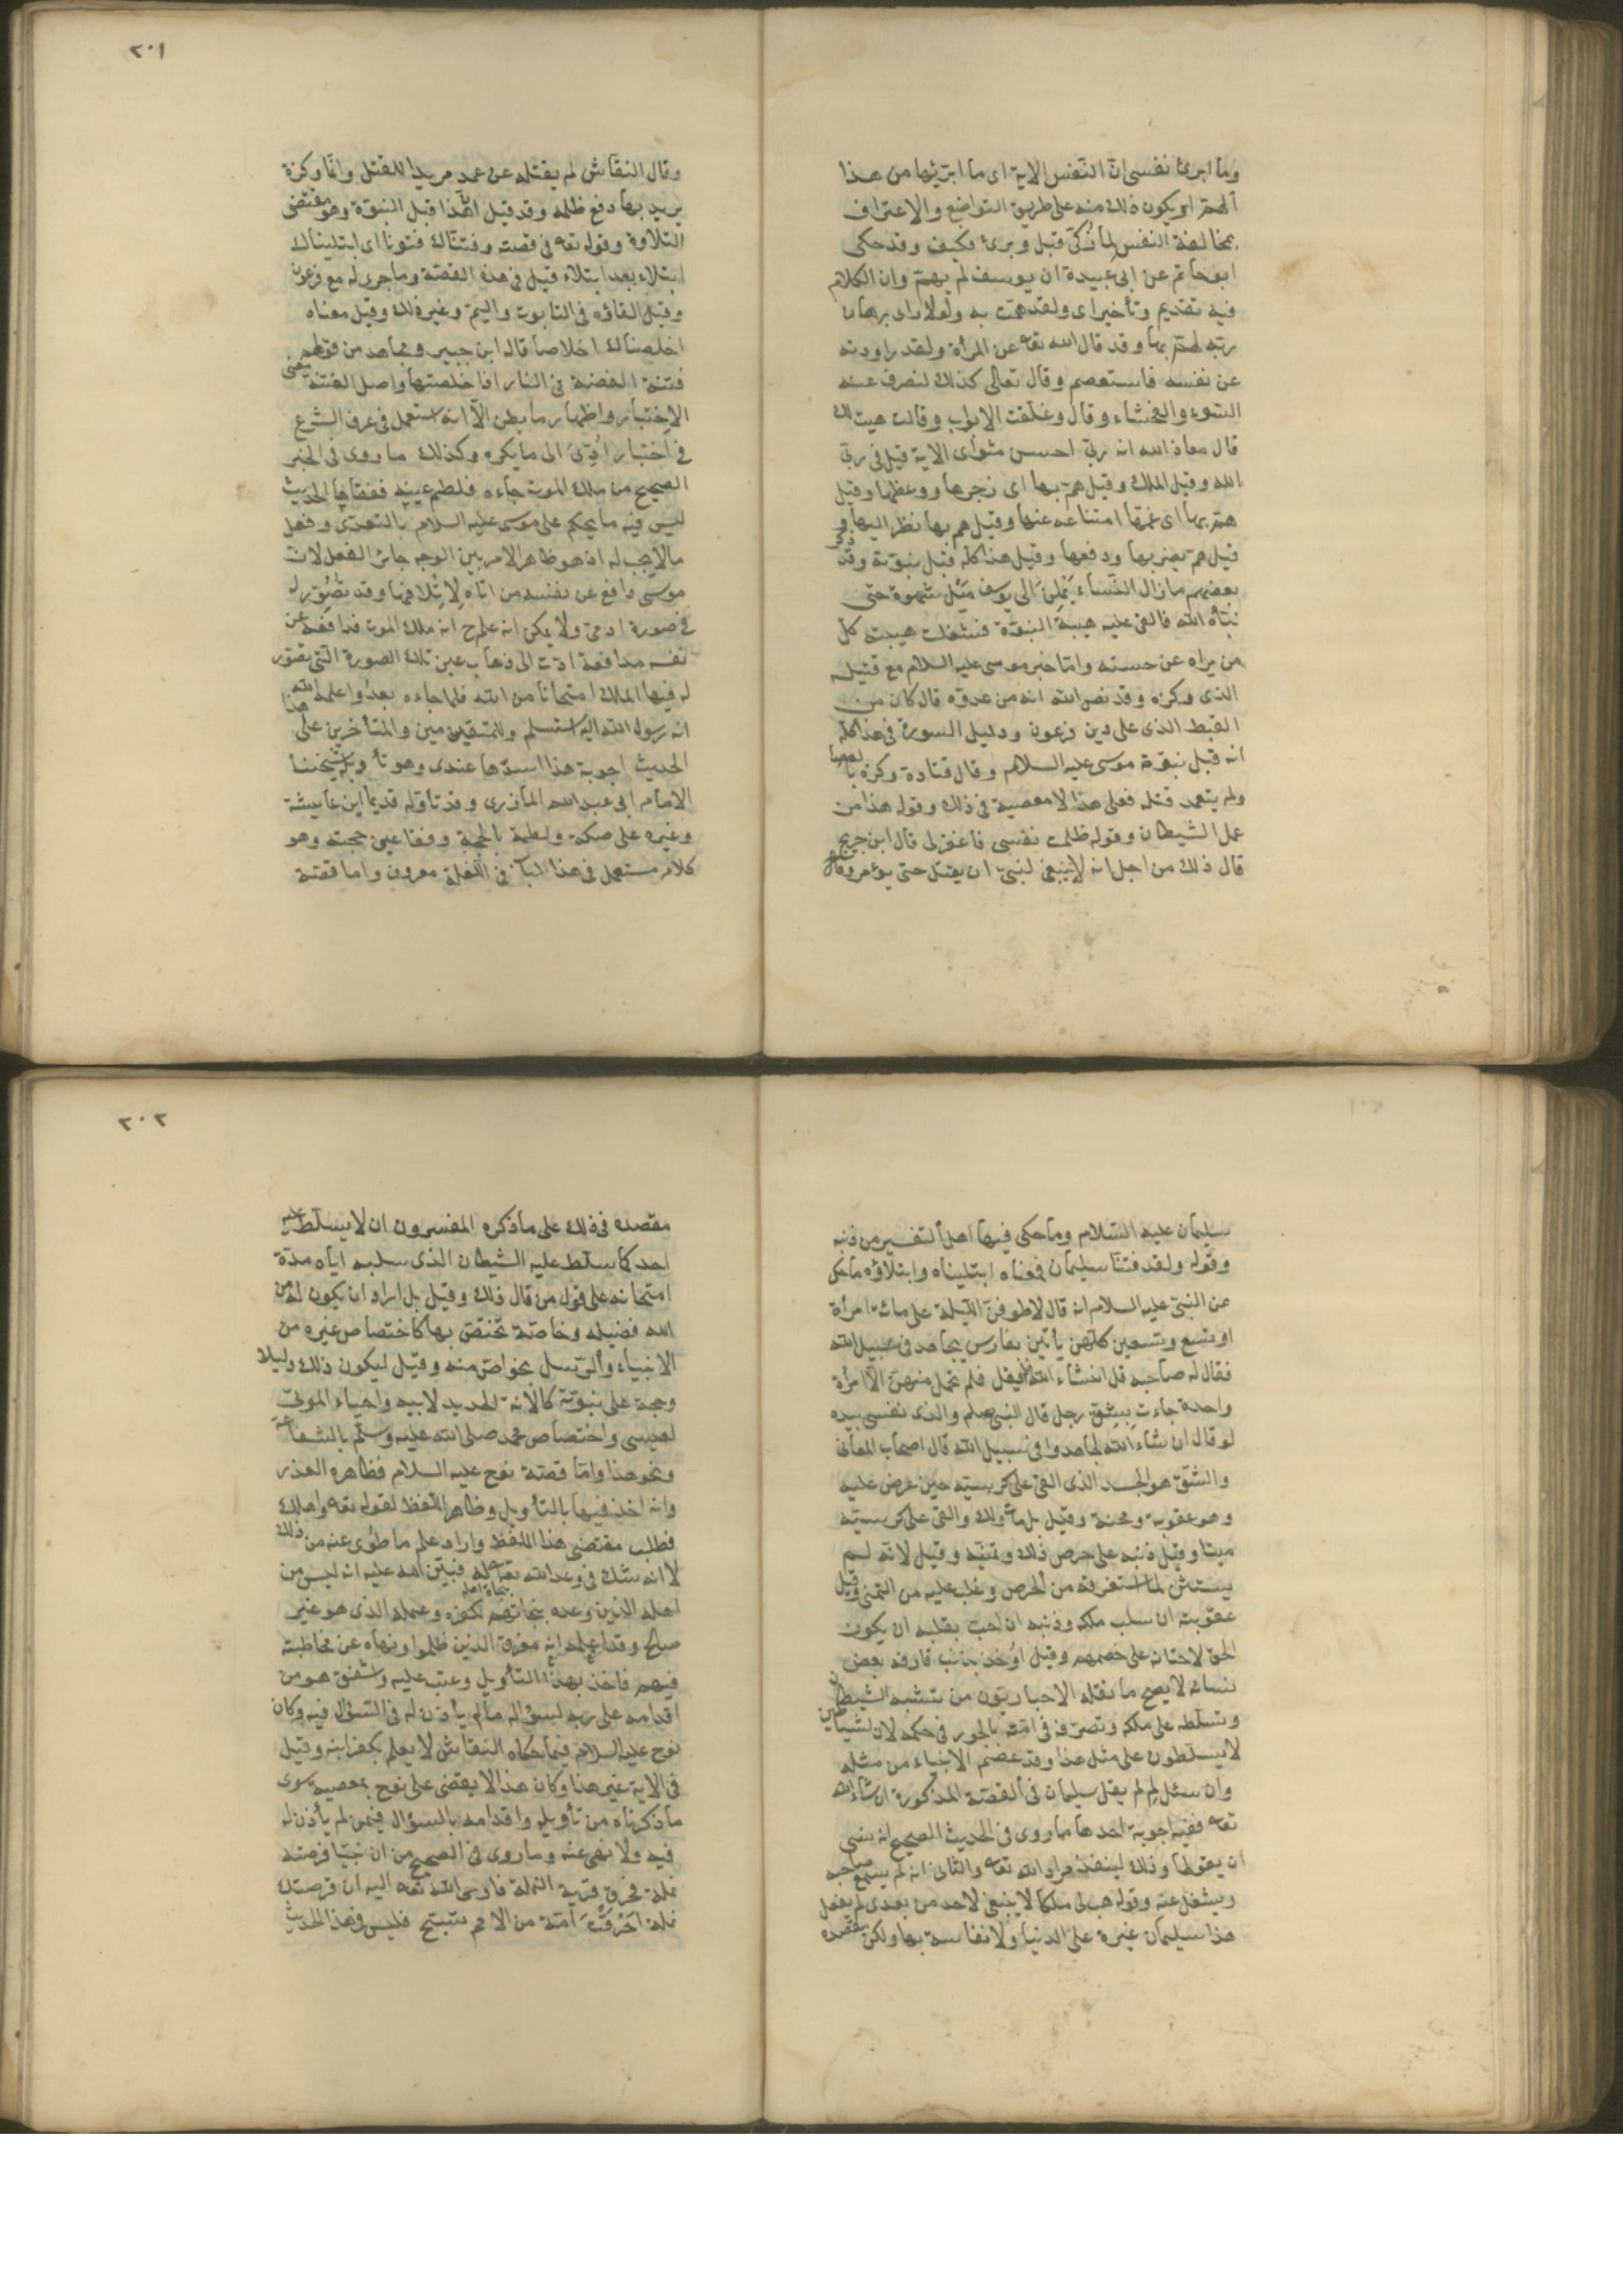 وما ابرئ نفسى انّ النّفس الاية اى ما ابرّئها من هذا
الهمّ او يكون ذلك منه على طريق التواضع والاعتراف
بمخالفة النفس لما زُكّى قبل وبرئ فكيف وقد حكى
ابو حاتم عن ابى عبيدة ان يوسف لم يهمّ وان الكلام
فيه تقديم وتأخير اى ولقد همت به ولولا ان راى برهان
ربّه لهمّ بها وقد قال الله تعه عن المرأة ولقد راودته
عن نفسه فاستعصم وقال تعالى كذلك لنصرف عنه
السّوء والفحشاء وقال وغلّقت الابواب وقالت هيت لك
قال معاذ الله انه ربّى احسن مثواى الاية قيل فى ربّى
الله وقيل الملك وقيل همّ بها اى زجرها ووعظها وقيل
همّ بها اى غمّها امتناعه عنها وقيل هم بها نظر اليها و
قيل همّ بضربها ودفعها وقيل هذا كله قبل نبوّته وقد ذكر
بعضهم ما زال النّساء يَمِلْنَ الى يوسف مَيْل شهوة حتى
نبّأه الله فالقى عليه هيبة النبوّة فشغلت هيبته كلّ
من يراه عن حسنه وامّا خبر موسى عليه السلام مع قتيله
الذى وكزه وقد نص الله انه من عدوّه قال كان من
القبط الذى على دين فرعون ودليل السورة فى هذا كلّه
انه قبل نبوّة موسى عليه السلام وقال قتادة وكزه بالعصا
ولم يتعمد قتله فعلى هذا لا معصية فى ذلك وقوله هذا من
عمل الشيطان وقوله ظلمت نفسى فاغفر لى قال ابن جريج
قال ذلك من اجل انه لا ينبغى لنبىّ ان يقتل حتى يؤمر
٢٠١
وقال النقاش لم يقتله عن عمد مريدا للقتل وانّما وكزة
يريد بها دفع ظلمه وقد قيل انّ هذا قبل النبوّة وهو مقتضى
التلاوة وقوله تعه فى قصته وفتنّاك فتونا اى ابتليناك
ابتلاء بعد ابتلاء قيل فى هذه القصّة وما جرى له مع فرعون
وقيل القاؤه فى التابوت واليمّ وغير ذلك وقيل معناه
اخلصناك اخلاصا قاله ابن جبير ومجاهد من قولهم
فتنت الفضة فى النار اذا خلصتها واصل الفتنة معنى
الاختبار واظهار ما بطن الّا انه استعمل فى عرف الشرع
فى اختبار أدّى الى ما يكره وكذلك ما روى فى الخبر
الصحيح من ملك الموت جاءه فلطم عينه ففقاها الحديث
ليس فيه ما يحكم على موسى عليه السلام بالتعدّى وفعل
ما لا يجب له اذ هو ظاهر الامر بيّن الوجه جائز الفعل لانّ
موسى دافع عن نفسه من اتاه لِاِتْلافها وقد تُصُوّر له
فى صورة ادمىّ ولا يمكن انه علم ح انه ملك الموت فدافعه عن
نفسه مدافعة ادّت الى ذهاب عين تلك الصورة التى تصّور
له فيها الملك امتحانا من الله فلما جاءه بعدُ واعلمه الله
انه رسول الله اليه استسلم وللمتقدّمين والمتأخرين على هذا
الحديث اجوبة هذا اسدّها عندى وهو تأويل شيخنا
الامام ابى عبد الله المازرى وقد تاوّله قديما ابن عايشة
وغيره على صكّه ولطمه بالحجّة وفقا عين حجته وهو
كلام مستعمل فى هذا الباب فى اللّغة معروف واما قصّة
سليمان عليه السّلام وما حكى فيها اهل التفسير من ذنبه
وقوله ولقد فتنّا سليمان فمعناه ابتليناه وابتلاؤه ما حكى
عن النبىّ عليه السلام انه قال لاطوفنّ اللّيلة على مائة امرأة
او تسع وتسعين كلهن يأتين بفارس يجاهد فى سبيل الله
فقال له صاحبه قل ان شاء الله فلم يقل فلم تحمل منهن الّا امرأة
واحدة جاءت بشق رجل قال النبىّ صلعم والذى نفسى بيده
لو قال ان شاء الله لجاهدوا فى سبيل الله قال اصحاب المعانى
والشّقّ هو الجسد الذى القى على كرسيّه حين عرض عليه
وهو عقوبته ومحنته وقيل بل مات ولك والقى على كرسيّه
ميتا وقيل ذنبه على حرص ذلك وتمنّيه وقيل لانه لم
يستثن لما استغرقه من الحرص وغلب عليه من التمنى وقيل
عقوبته ان سلب ملكه وذنبه ان احبّ بقلبه ان يكون
الحق لاختانه على خصمهم وقيل اُوخذ بذنب قارفه بعض
نسائه لا يصح ما نقله الاخباريّون من تشبه الشيطان
وتسلّطه على ملكه وتصرّفه فى امّته بالجور فى حكمه لان الشياطين
لا يسلطون على مثل هذا وقد عصم الانبياء من مثله
وان سئل لِمَ لم يقل سليمان فى القصّة المذكورة ان شاء الله
تعه ففيه اجوبة احدها ما روى فى الحديث الصحيح انه نسى
ان يقولها وذلك لينفذ مراد الله تعه والثانى انه لم يسمع صاحبه
وشغل عنه وقوله هب لى ملكا لا ينبغى لاحد من بعدى لم يفعل
هذا سليمان غيرة على الدنيا ولا نفاسة بها ولكن مقصده
٢٠٢
مقصده فى ذلك على ما ذكره المفسرون ان لا يسلّط عليه
احد كما سلّط عليه الشيطان الذى سلبه اياه مدّة
امتحانه على قول من قال ذلك وقيل بل اراد ان يكون له من
الله فضيله وخاصّة تختصّ بها كاختصاص غيره من
الانبياء والرّسل بخواصّ منه وقيل ليكون ذلك دليلا
وحجة على نبوّته كالانة الحديد لابيه واحياء الموتى
لعيسى واختصاص محمد صلى الله عليه وسلّم بالشفاعة
ونحو هذا وامّا قصّة نوح عليه السلام فظاهره العذر
وانه اخذ فيها بالتأويل وظاهر اللّفظ لقوله تعه واهلك
فطلب مقتضى هذا اللفظ واراد علم ما طُوى عنه من ذلك
لا انه شك فى وعد الله تعه فبيّن الله عليه انه ليس من
اهله الذين وعده بنجاتهم لكفره وعمله الذى هو غير
صالح وقد اعلمه انه مغرق الذين ظلموا ونهاه عن مخاطبته
فيهم فاخذ بهذا التأويل وعتب عليه واشفق هو من
اقدامه على ربه لسؤاله ما لم يأذن له فى السّؤال فيه وكان
نوح عليه السلام فيما حكاه النقاش لا يعلم بكفر ابنه وقيل
فى الاية غير هذا وكان هذا لا يقضى على نوح بمعصية سوى
ما ذكرناه من تأويله واقدامه بالسؤال فيمن لم يأذن له
فيه ولا نهى عنه وما روى فى الصحيح من ان نبيّا قرصته
نملة فحرق قرية النملة فاوحى الله تعه اليه ان قرصتك
نملة اَحْرَقْتَ امّة من الامم تسبّح فليس فى هذا الحديث